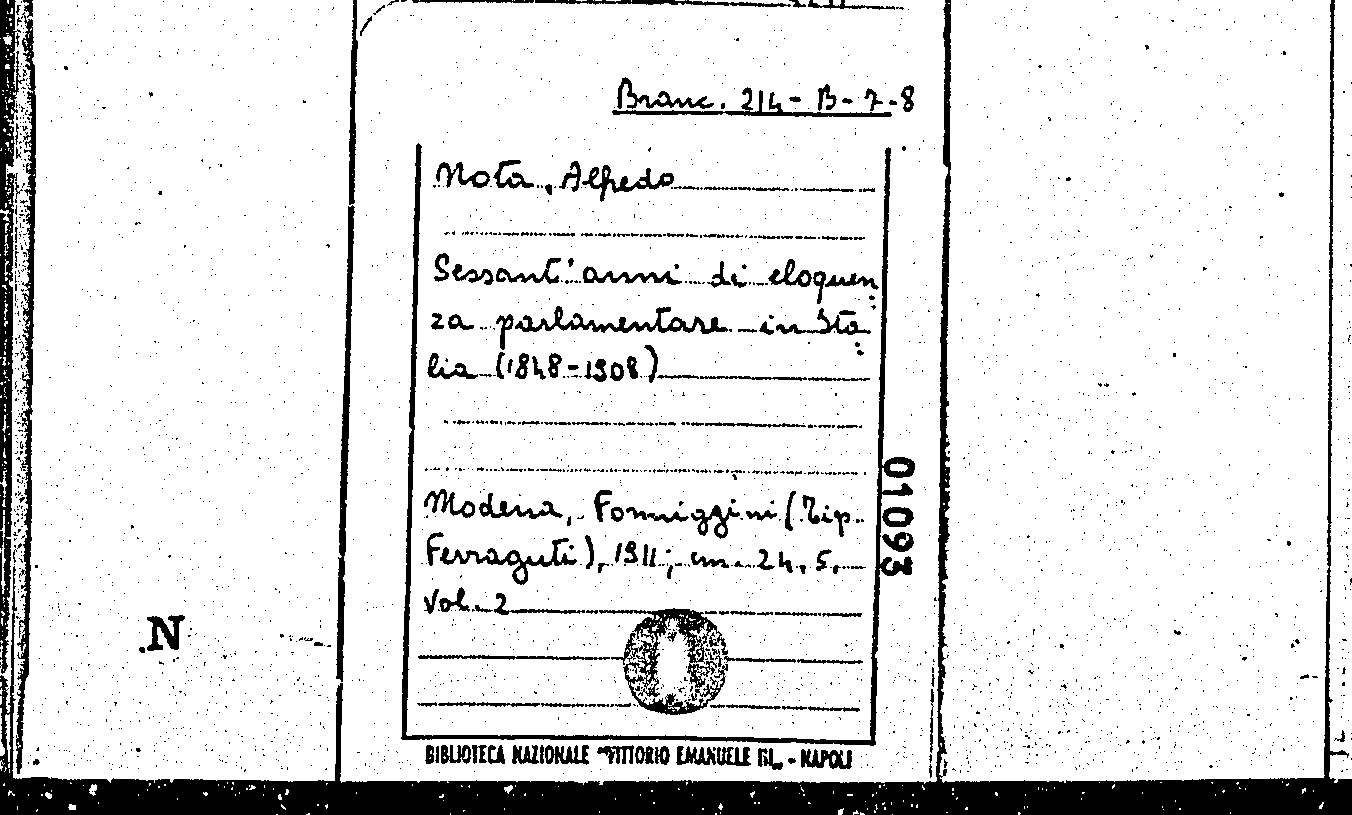 Branc. 214-B-7-8
Nota, Alfredo
Sessant'anni di eloquen
za parlamentare in Ita
lia (1848-1908)
Modena, Formiggini (Tip.
Ferraguti), 1911; cm. 24,5,
Vol. 2
01093
N
BIBLIOTECA NAZIONALE "VITTORIO EMANUELE III„ - NAPOLI